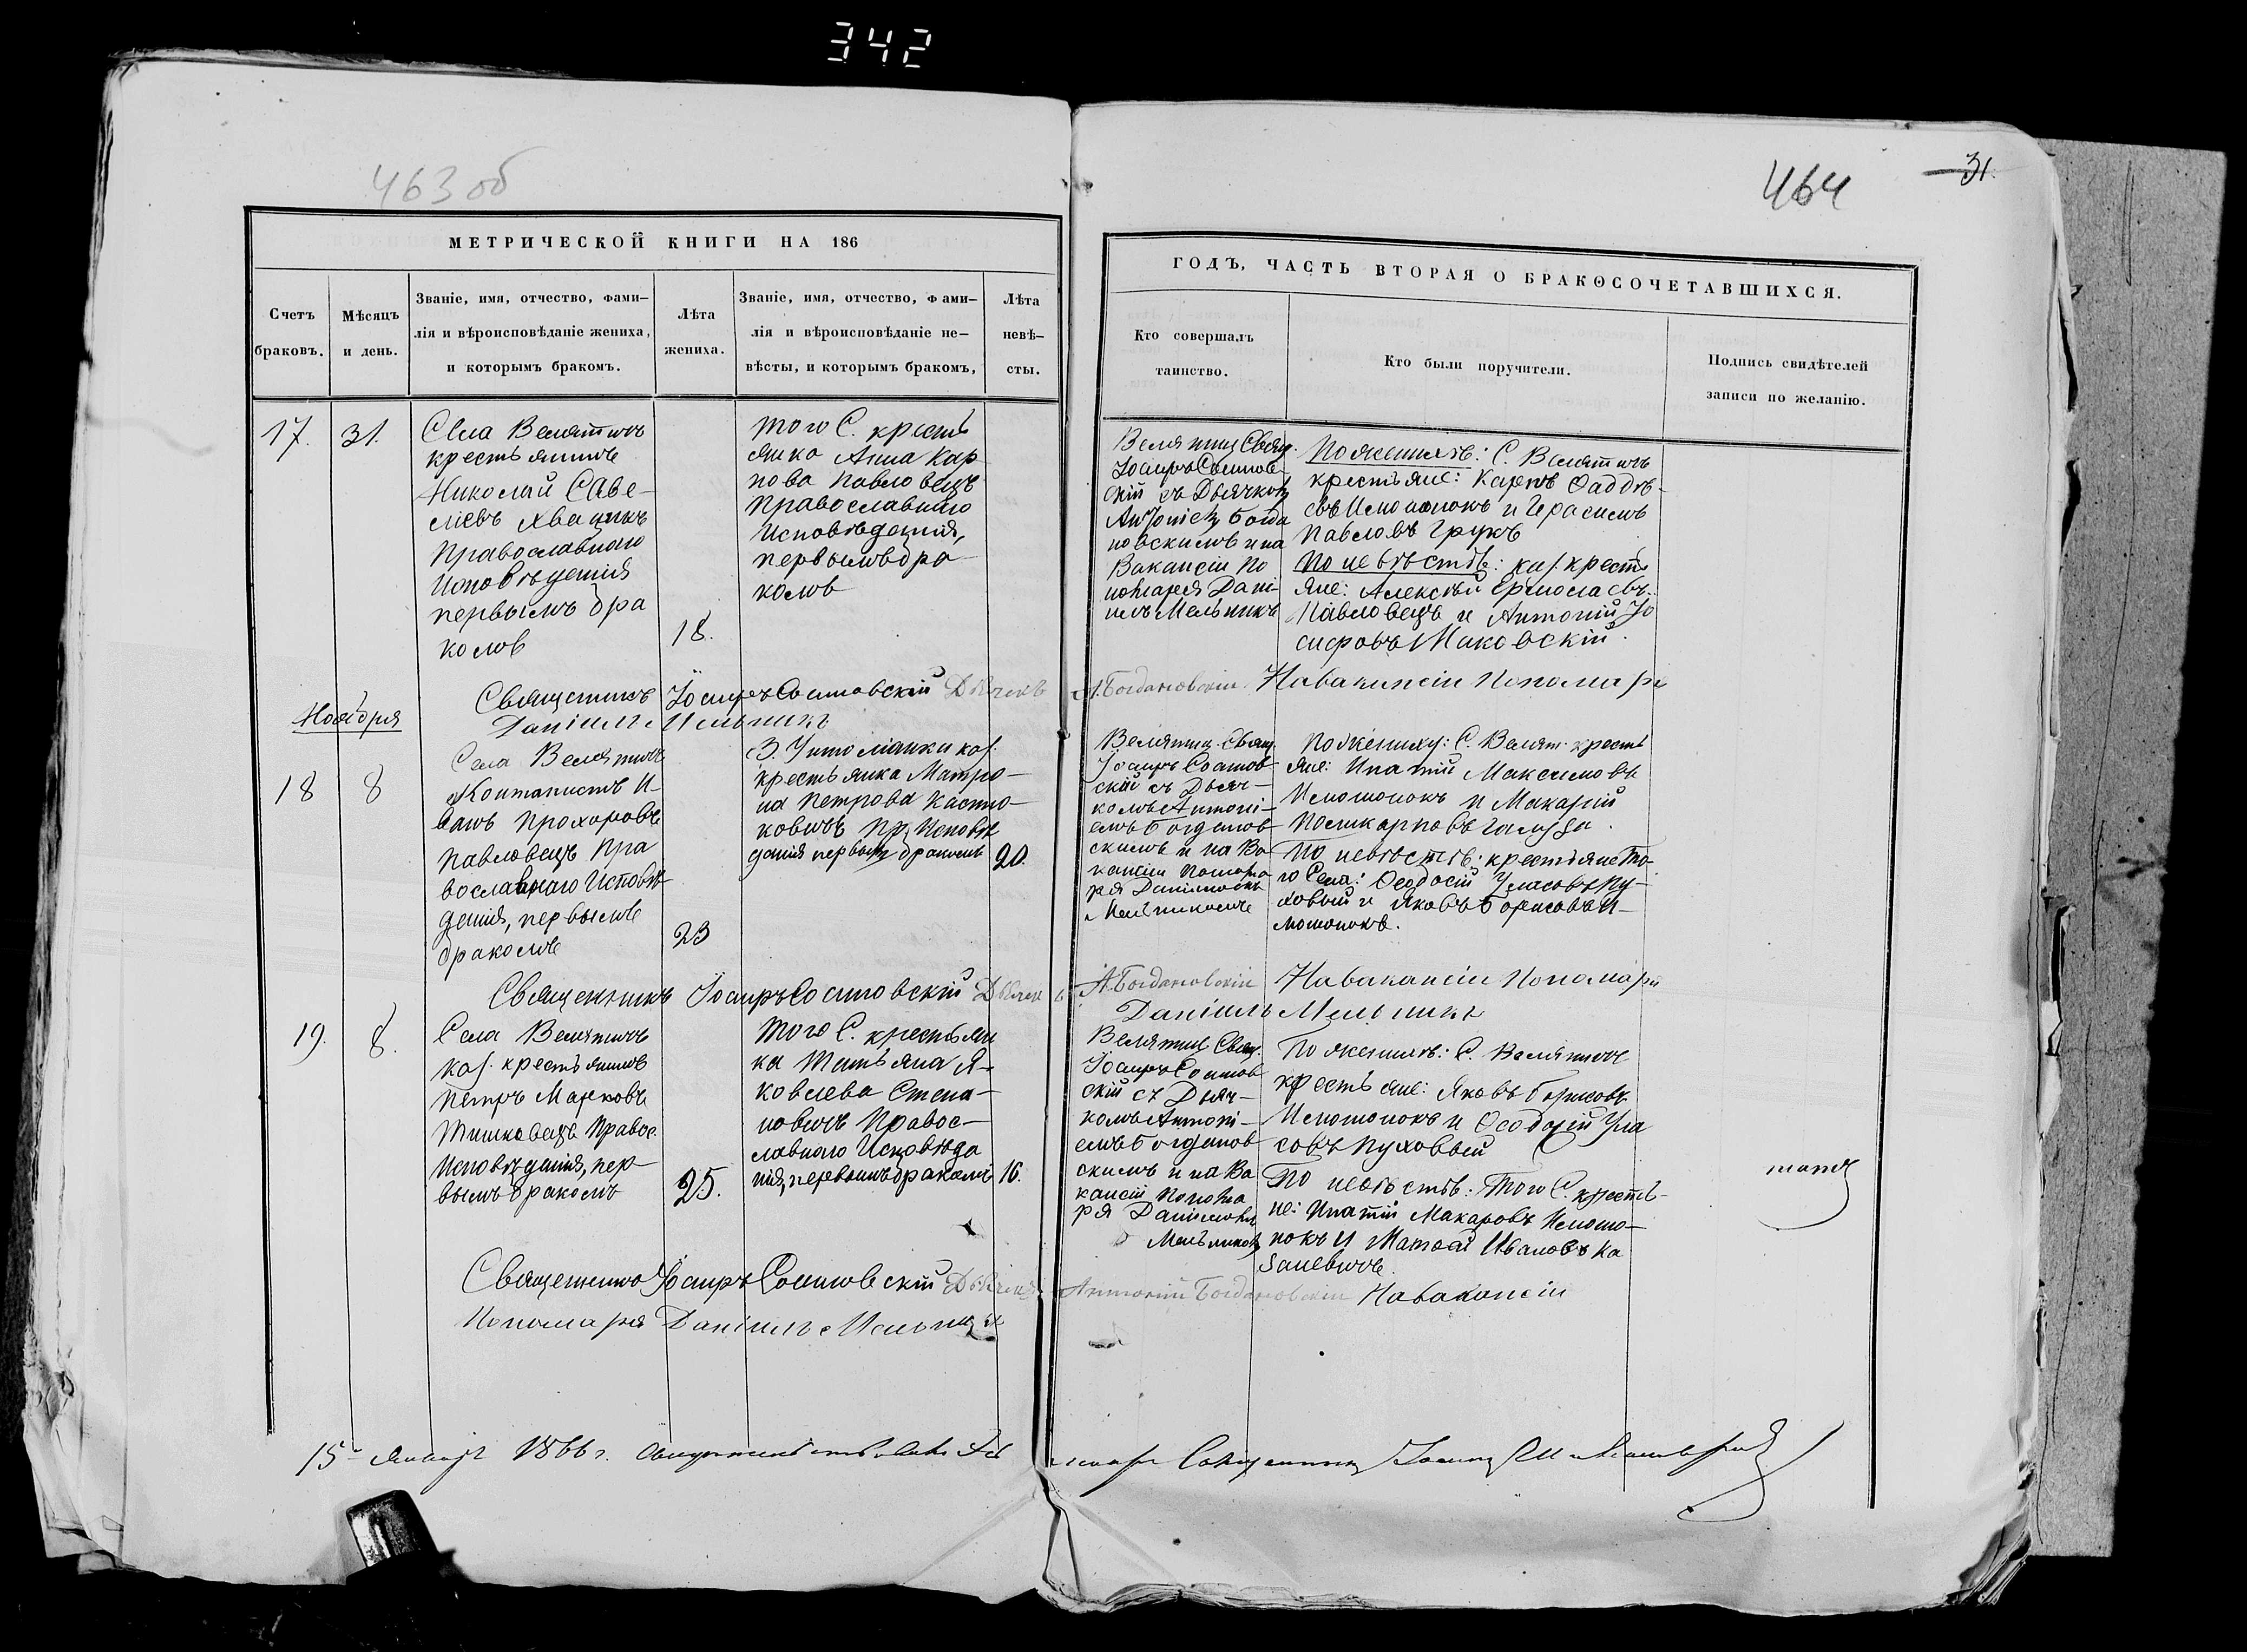 342
463 об
464
31.
МЕТРИЧЕСКОЙ КНИГИ НА 186
Счетъ
браковъ.
Мѣсяцъ
и день.
Званіе, имя, отчество, фами-
лія и вѣроисповѣданіе жениха,
и которымъ бракомъ.
Лѣта
жениха.
Званіе, имя, отчество, фами-
лія и вѣроисповѣданіе не-
вѣсты, и которымъ бракомъ,
Лѣта
невѣ-
сты.
ГОДЪ, ЧАСТЬ ВТОРАЯ О БРАКОСОЧЕТАВШИХСЯ.
Кто совершалъ
таинство.
Кто были поручители.
Подпись свидѣтелей
записи по желанію.
17.
31.
Села Велятичъ
крестьянинъ
Николай Саве-
лiевъ
Православнаго
Исповѣданія
первымъ бра
комъ
18.
того С. кресть
янка Анна Кар
пова Павловецъ
Православнаго
Исповѣданія,
первымъ бра
комъ
Велятиц Свящ.
Іоаннъ
скій съ Дьячкомъ
Антоніемъ Богда
новскимъ и на
Вакансіи По
номаря Дані-
илъ Мельникъ
По женихѣ: С. Велятичъ
крестьяне: Карпъ Фаддѣ-
евъ и Герасимъ
Павловъ Грукъ
По невѣстѣ: каз. кресть
яне: Алексѣй Ермолаевъ
Павловецъ и Антоній Іо
сифовъ Маковскій.
Священникъ Іоаннъ Дьячекъ А. Богдановскій На вакансіи Пономаря
Даніилъ Мельникъ
Ноября
18
8
Села Велятичъ
И-
ванъ Прохоровъ
Павловецъ Пра
вославнаго Исповѣ-
данія, первымъ
бракомъ
23
каз.
крестьянка Матро-
на Петрова Касто-
ковичъ Пр. Исповѣ
данія первымъ бракомъ
20.
Велятиц. Свящ
Іоаннъ
скій съ Дьяч-
комъ Антоні-
емъ Богданов
скимъ и на Ва
кансіи Понома
ря Даніиломъ
Мельникомъ
По жениху: С. Велят. кресть
яне: Ипатій Максимовъ
и Макарій
Поликарповъ
По невѣстѣ: крестьяне то-
го Села: Ѳеодосій Уласовъ Пу-
ховый и Яковъ Борисовъ
Священникъ Іоаннъ Дьячекъ А. Богдановскій На вакансіи Пономаря
Даніилъ Мельникъ
19.
8.
Села Велятичъ
каз. крестьянинъ
Петръ Марковъ
Тишковецъ Правос.
Исповѣданія, пер-
вымъ бракомъ
25.
того С. крестьян
ка Татьяна Я-
ковлева Степа-
новичъ Правос-
лавнаго Исповѣда
нія, первымъ бракомъ
16.
Велятиц Свящ.
Іоаннъ
скій съ Дьяч-
комъ Антоні-
емъ Богданов
скимъ и на Ва
кансіи Понома
ря Даніиломъ
Мельникомъ
По женихѣ: С. Велятичъ
крестьяне: Яковъ Борисовъ
и Ѳеодосій Ула
совъ Пуховый
По невѣстѣ: Того С. крестья-
не: Ипатій Макаровъ
и Матѳей Ивановъ Ка
заневичъ
Священникъ Іоаннъ Дьячекъ Антоній Богдановскій На вакансіи
Пономаря Даніилъ Мельникъ
15 Января 1866 г. Священникъ Іоаннъ